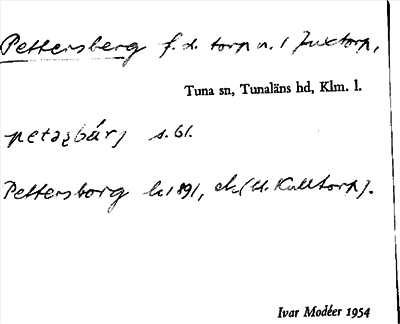 Pettersberg f.d. torp u. 1 Juxtorp,
Tuna sn, Tunaläns hd, Klm. l.
s. 61.
Pettersborg k 1891, ek (U. Kulltorp).
Ivar Modéer 1954